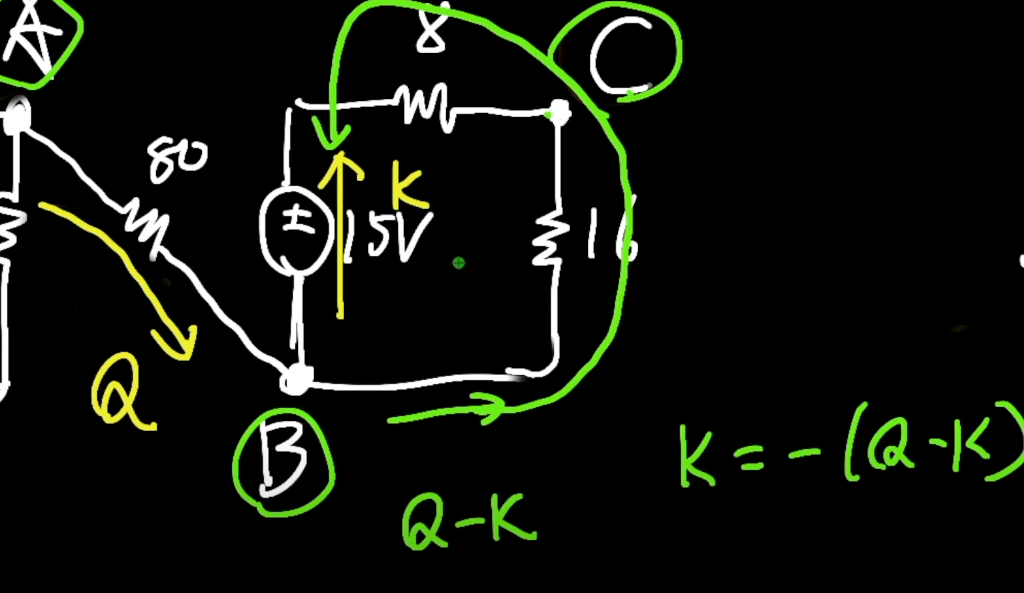 A
8
C
80
K
±
15V
16
Q
B
K = -(Q-K)
Q-K